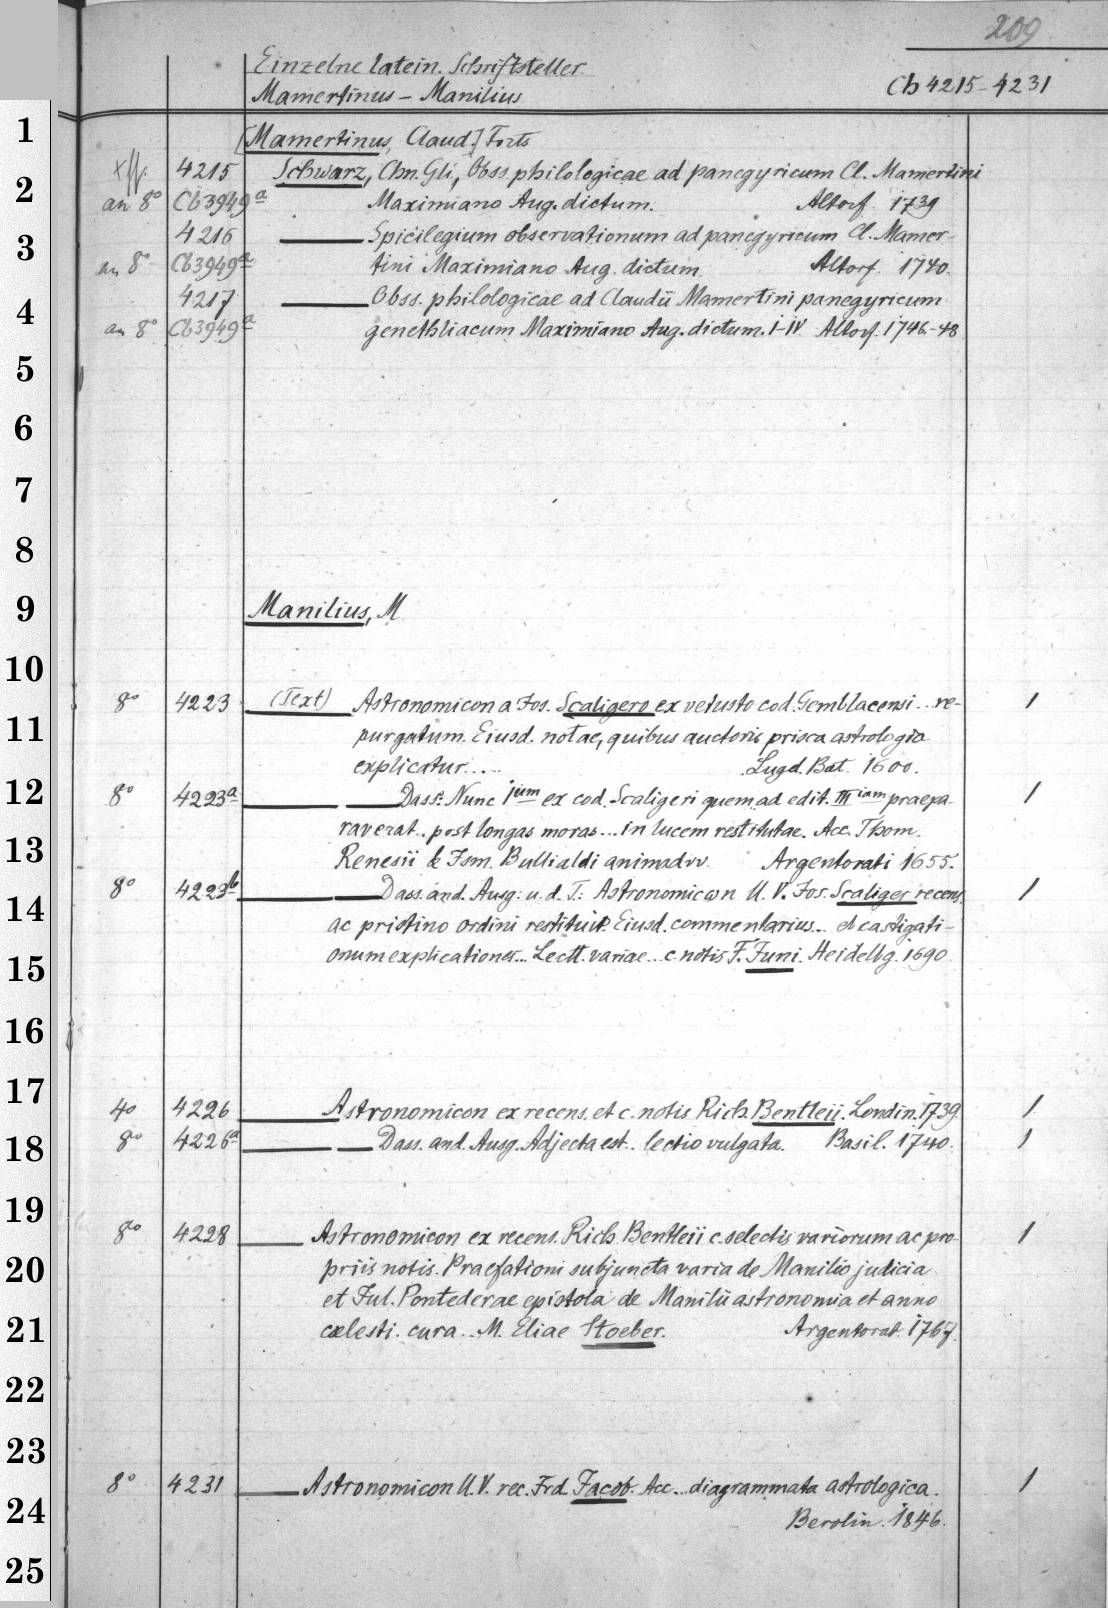 209
Einzelne latein. Schriftsteller
Mamertinus – Manilius Cb 4215-4231
1
[Mamertinus, Claud.] Forts
4215 Schwarz, Chn. Gli, Obss. philologicae ad panegyricum Cl. Mamertini
2
an 8° Cb3949a Maximiano Aug. dictum. Altorf. 1739
4216 ——— Spicilegium observationum ad panegyricum Cl. Mamer-
3
an 8° Cb3949a tini Maximiano Aug. dictum. Altorf. 1740.
4217 ——— Obss. philologicae ad Claudii Mamertini panegyricum
4
an 8° Cb3949a genethliacum Maximiano Aug. dictum. I-IV. Altorf. 1746-48
5
6
7
8
9
Manilius, M.
10
8° 4223 (Text) Astronomicon a Jos. Scaligero ex vetusto cod. Gemblacensi .. re- 1
11
purgatum. Eiusd. notae, quibus auctoris prisca astrologia
explicatur..... Lugd. Bat. 1600.
12
8° 4223a ——— ——— Dass. Nunc Ium ex cod. Scaligeri quem ad edit. IIIiam praepa- 1
raverat.. post longas moras... in lucem restitutae. Acc. Thom.
13
Renesii & Ism. Bullialdi animadvv. Argentorati 1655.
8° 4223b ——— ——— Dass. and. Ausg. u. d. T.: Astronomicωn U. V. Jos. Scaliger recens. 1
14
ac pristino ordini restituit. Eiusd. commentarius... et castigati-
15
onum explicationes... Lectt. variae... c. notis F. Juni. Heidelbg. 1690
16
17
4° 4226 ——— Astronomicon ex recens. et c. notis Rich. Bentleii. Londin. 1739 1
18
8° 4226a ——— ——— Dass. and. Ausg. Adjecta est.. lectio vulgata. Basil. 1740. 1
19
8° 4228 ——— Astronomicon ex recens. Rich. Bentleii c. selectis variorum ac pro- 1
20
priis notis. Praefationi subjuncta varia de Manilio judicia
et Jul. Pontederae epistola de Manilii astronomia et anno
21
caelesti. cura.. M. Eliae Stoeber. Argentorat. 1767.
22
23
8° 4231 ——— Astronomicon U. V. rec. Frd. Jacob. Acc... diagrammata astrologica. 1
24
Berolin. 1846.
25